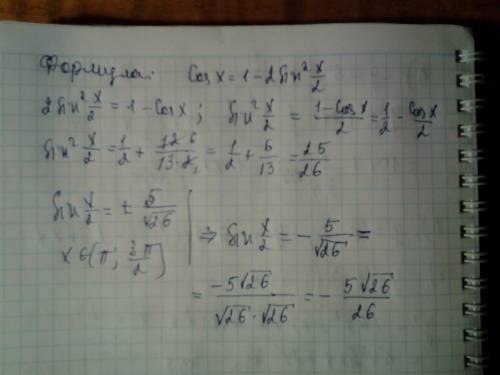 Формула: Cos x = 1 - 2 Sin² x/2
2 Sin² x/2 = 1 - Cos x ; Sin² x/2 = (1 - Cos x)/2 = 1/2 - Cos x/2
Sin² x/2 = 1/2 + 12 6/(13·2) = 1/2 + 6/13 = 25/26
Sin x/2 = ± 5/√26 | ⇒ Sin x/2 = - 5/√26 =
x ∈ (π; 3π/2)
= -5√26/(√26 · √26) = - 5√26/26